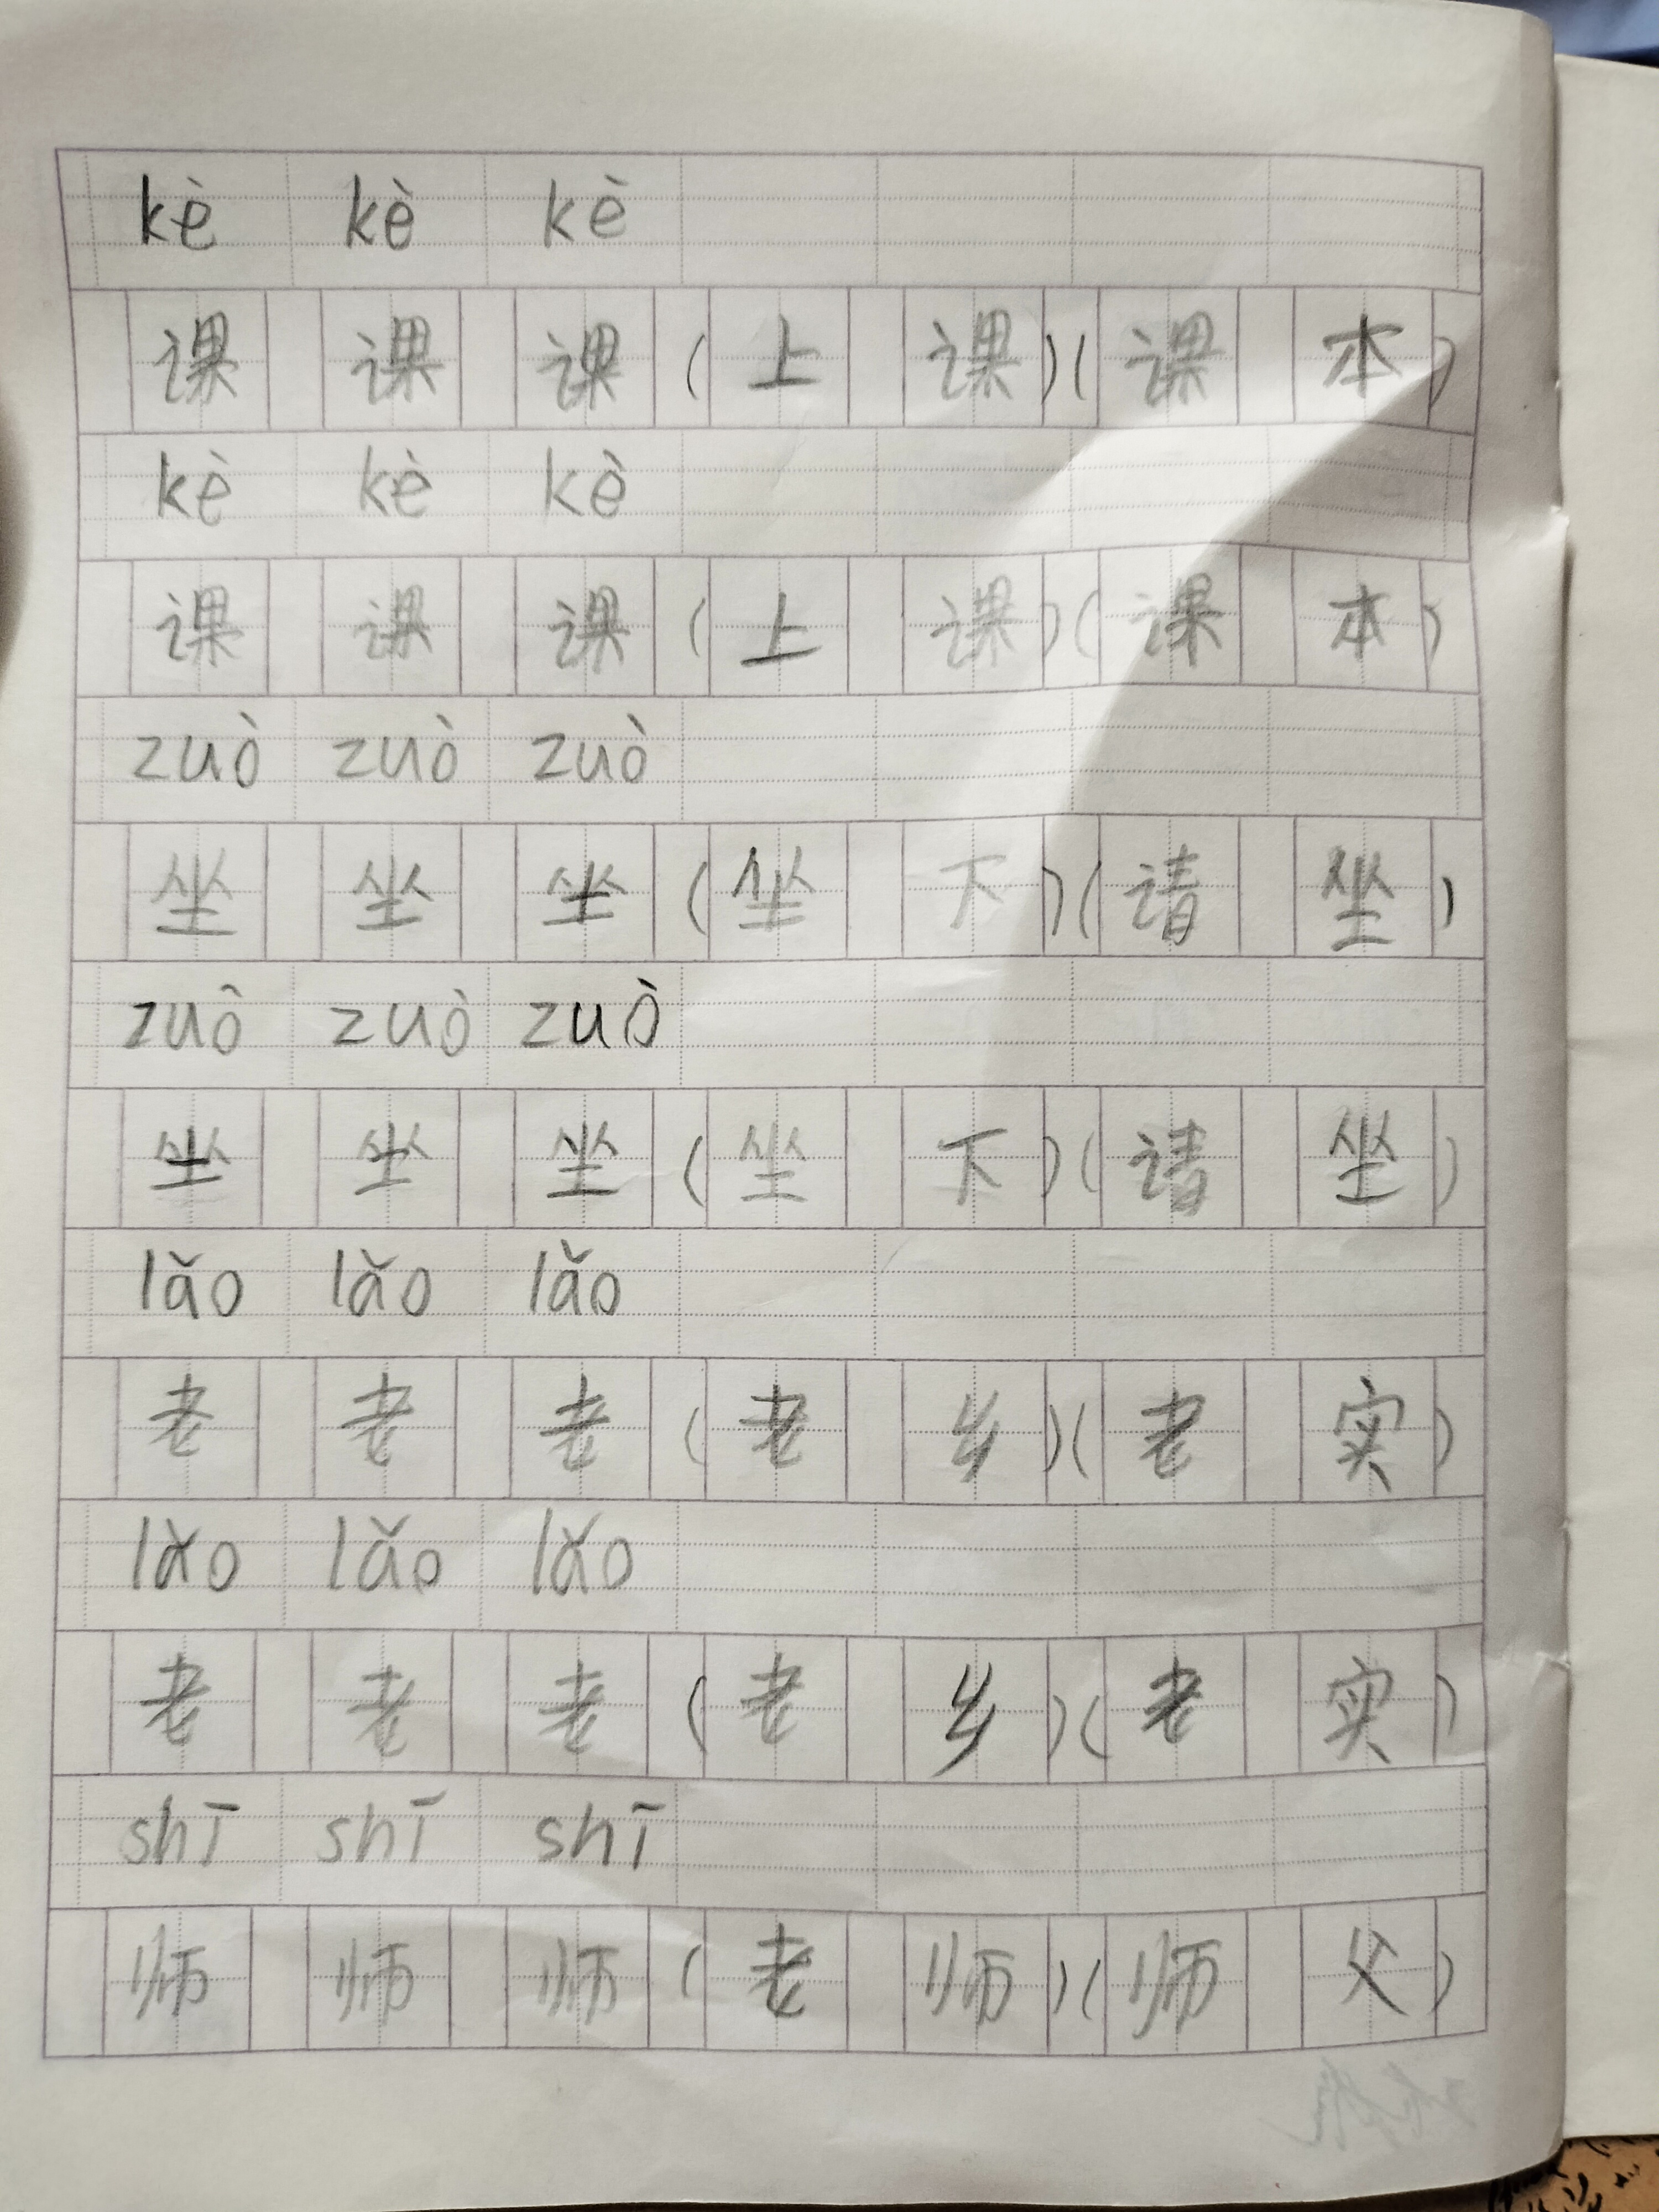 kè kè kè
课 课 课 (上 课)(课 本)
kè kè kè
课 课 课 (上 课)(课 本)
zuò zuò zuò
坐 坐 坐 (坐 下)(请 坐)
zuò zuò zuò
坐 坐 坐 (坐 下)(请 坐)
lǎo lǎo lǎo
老 老 老 (老 乡)(老 实)
lǎo lǎo lǎo
老 老 老 (老 乡)(老 实)
shī shī shī
师 师 师 (老 师)(师 父)